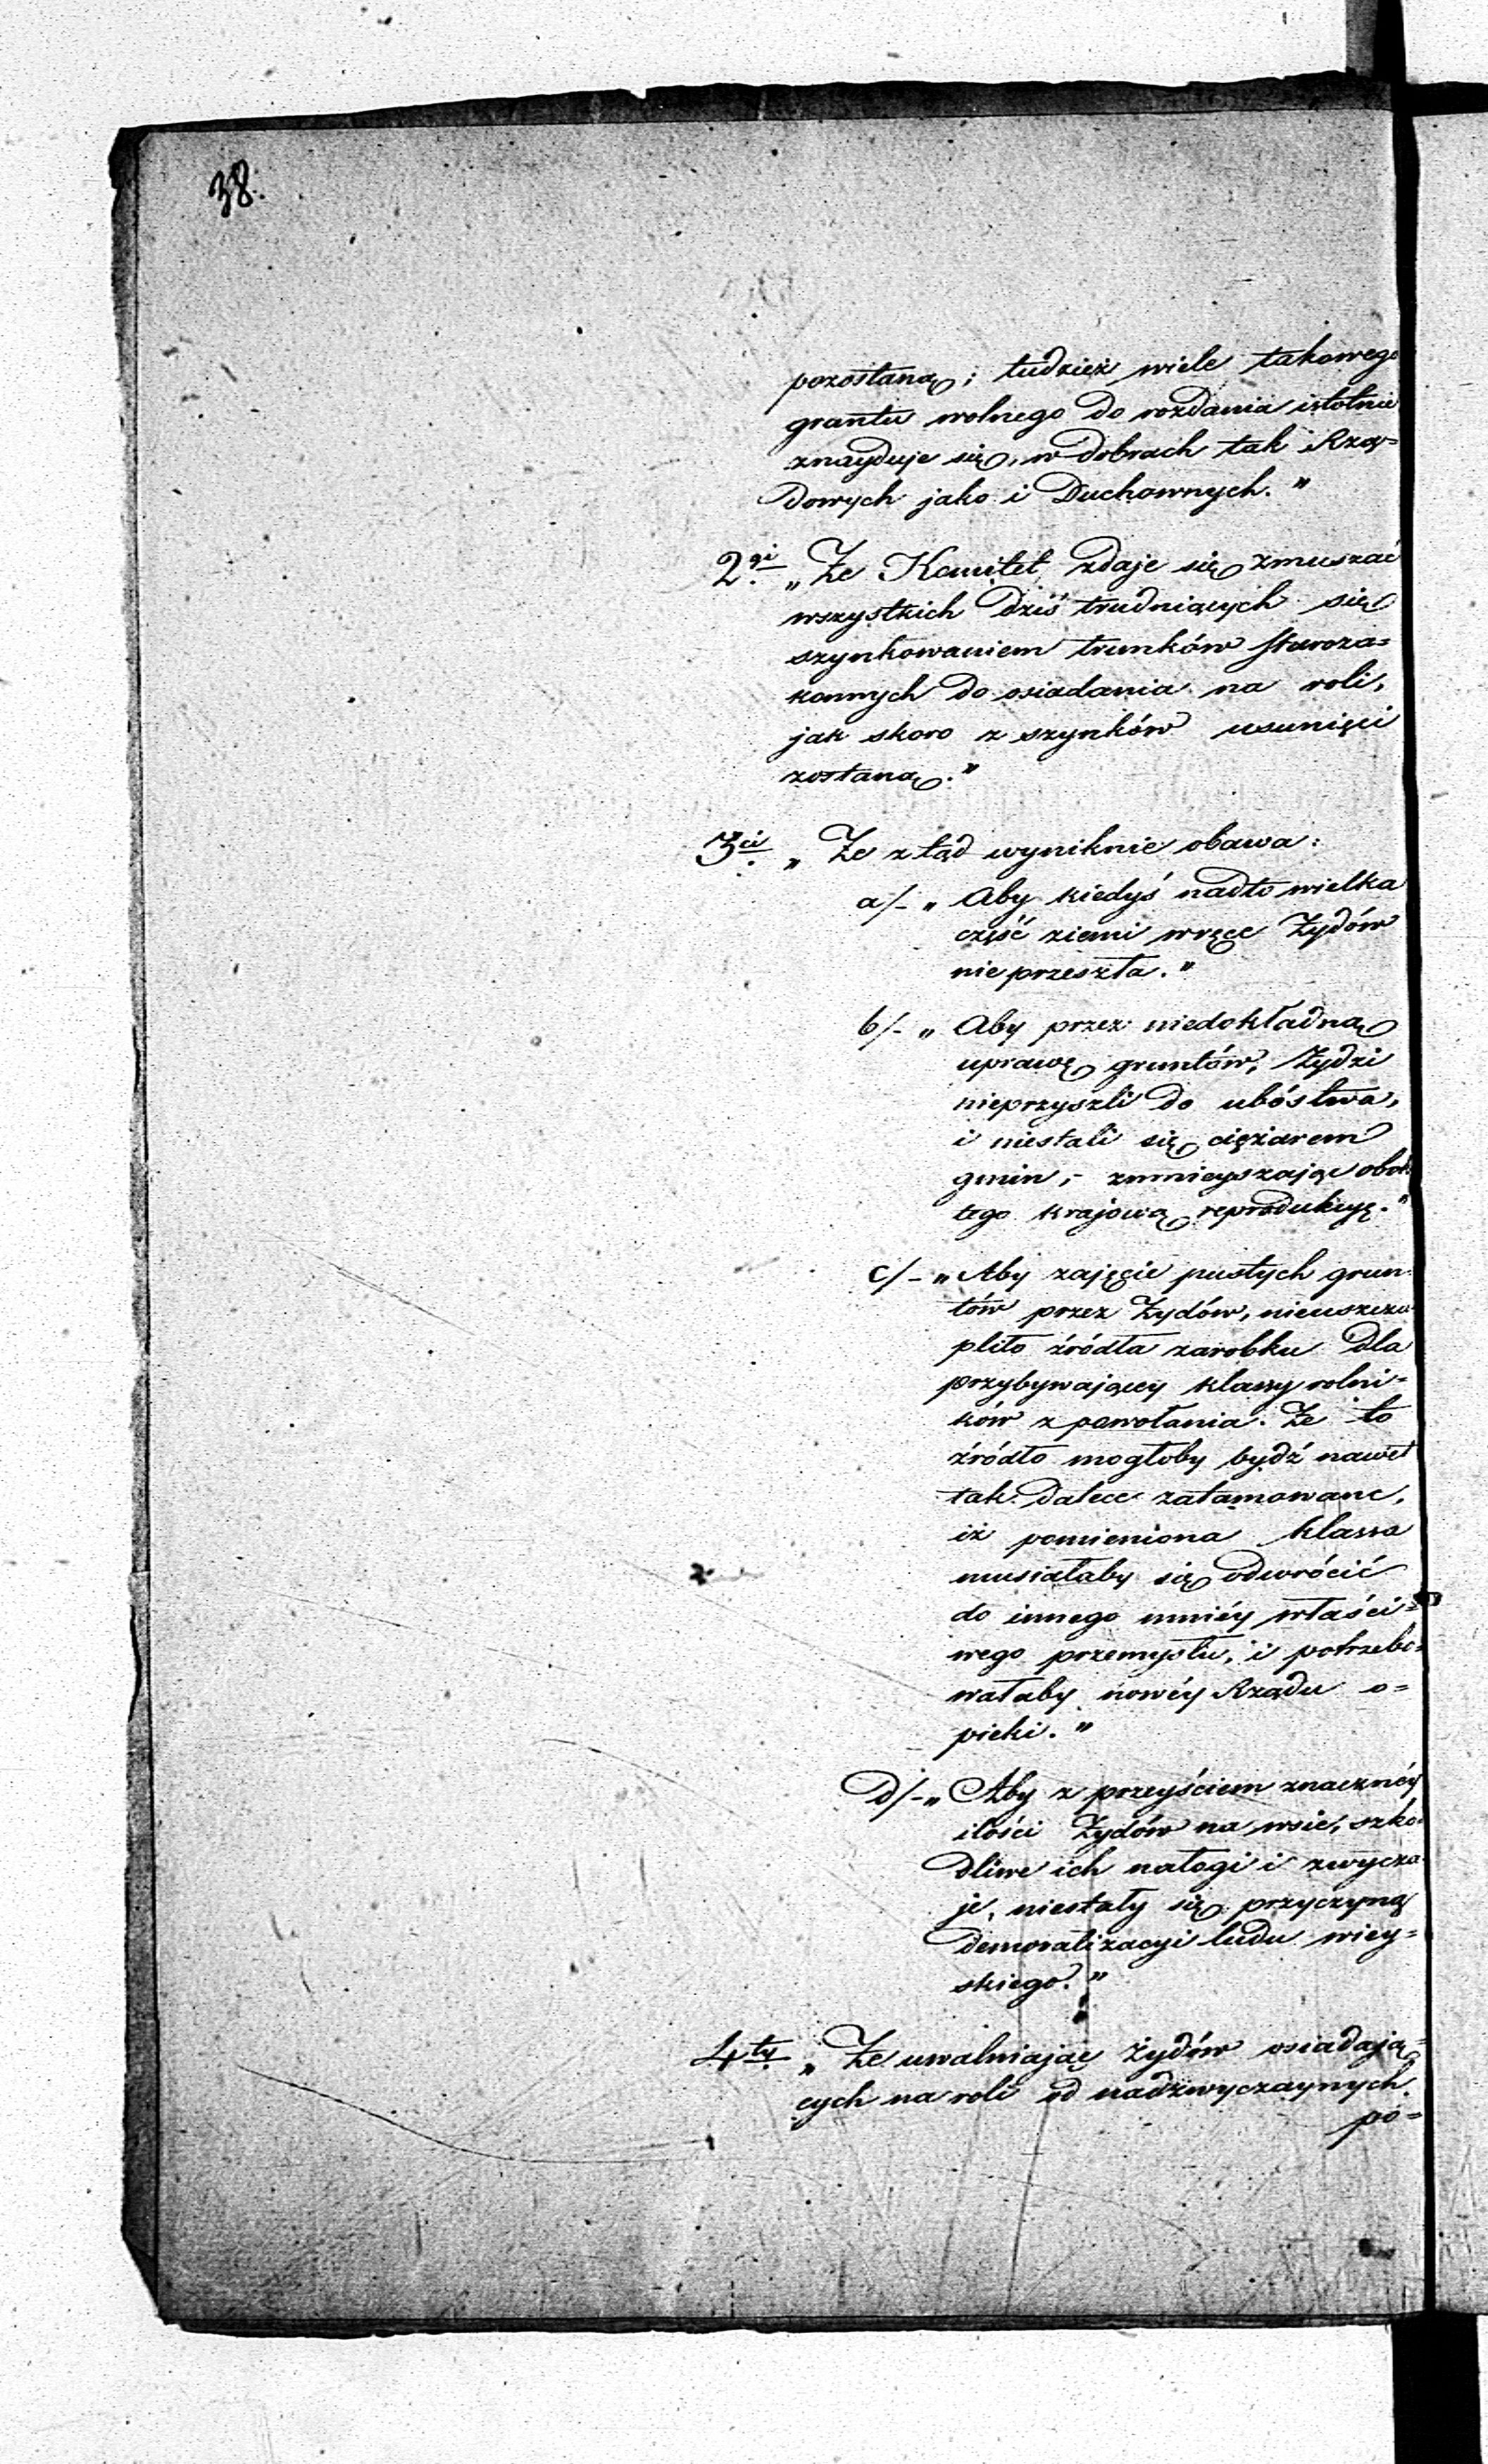 38.
pozostaną; tudzież wiele takowego
gruntu wolnego do rozdania istotnie
znayduje się, w dobrach tak Rzą=
dowych jako i Duchownych."
2gi „Że Komitet zdaje się zmuszać
wszystkich dziś trudniących się
szynkowaniem trunków Staroza=
konnych do osiadania na roli,
jak skoro z szynków usunięci
zostaną."
3ci „Że ztąd wyniknie obawa:
a/- „Aby kiedyś nadto wielka
część ziemi wręce Żydów
nie przeszła."
b/- „Aby przez niedokładną
uprawę gruntów, Żydzi
nieprzyszli do ubóstwa,
i niestali się ciężarem
gmin, - zmnieyszając obok
tego krajową reprodukcyę."
c/- „Aby zajęcie pustych grun=
tów przez Żydów, nieuszczu=
pliło źródła zarobku dla
przybywaiącey klassy rolni=
ków z powołania. Że to
źródło mogłoby bydź nawet
tak dalece zatamowane,
iż pomieniona klassa
musiałaby się odwrócić
do innego mniéy właści=
wego przemysłu, i potrzebo=
wałaby nowéy Rządu o=
pieki."
d/- „Aby z przeyściem znacznéy
ilości Żydów na wsie, szko=
dliwe ich nałogi i zwycza=
je, niestały się przyczyną
demoralizacyi ludu wiey=
skiego."
4ty „Że uwalniając żydów osiadają=
cych na roli od nadzwyczaynych
po=